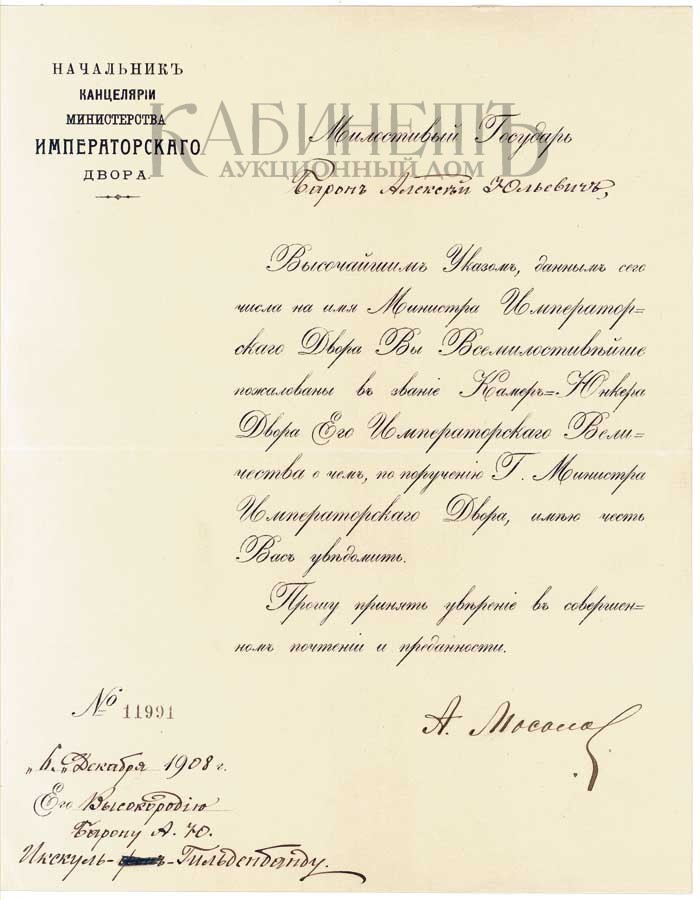 НАЧАЛЬНИКЪ
КАНЦЕЛЯРІИ
МИНИСТЕРСТВА
ИМПЕРАТОРСКАГО
ДВОРА.
КАБИНЕТЪ
АУКЦИОННЫЙ ДОМ
Милостивый Государь
Баронъ Алексѣй Юльевичъ,
Высочайшимъ Указомъ, даннымъ сего
числа на имя Министра Император=
скаго Двора Вы Всемилостивѣйше
пожалованы въ званіе Камеръ=Юнкера
Двора Его Императорскаго Вели=
чества о чемъ, по порученію Г. Министра
Императорскаго Двора, имѣю честь
Васъ увѣдомить.
Прошу принять увѣреніе въ совершен=
номъ почтеніи и преданности.
А. Мосолов
№ 11991
„6„ Декабря 1908 г.
Его Высокородію
Барону А. Ю.
Икскуль-Гильденбанду.